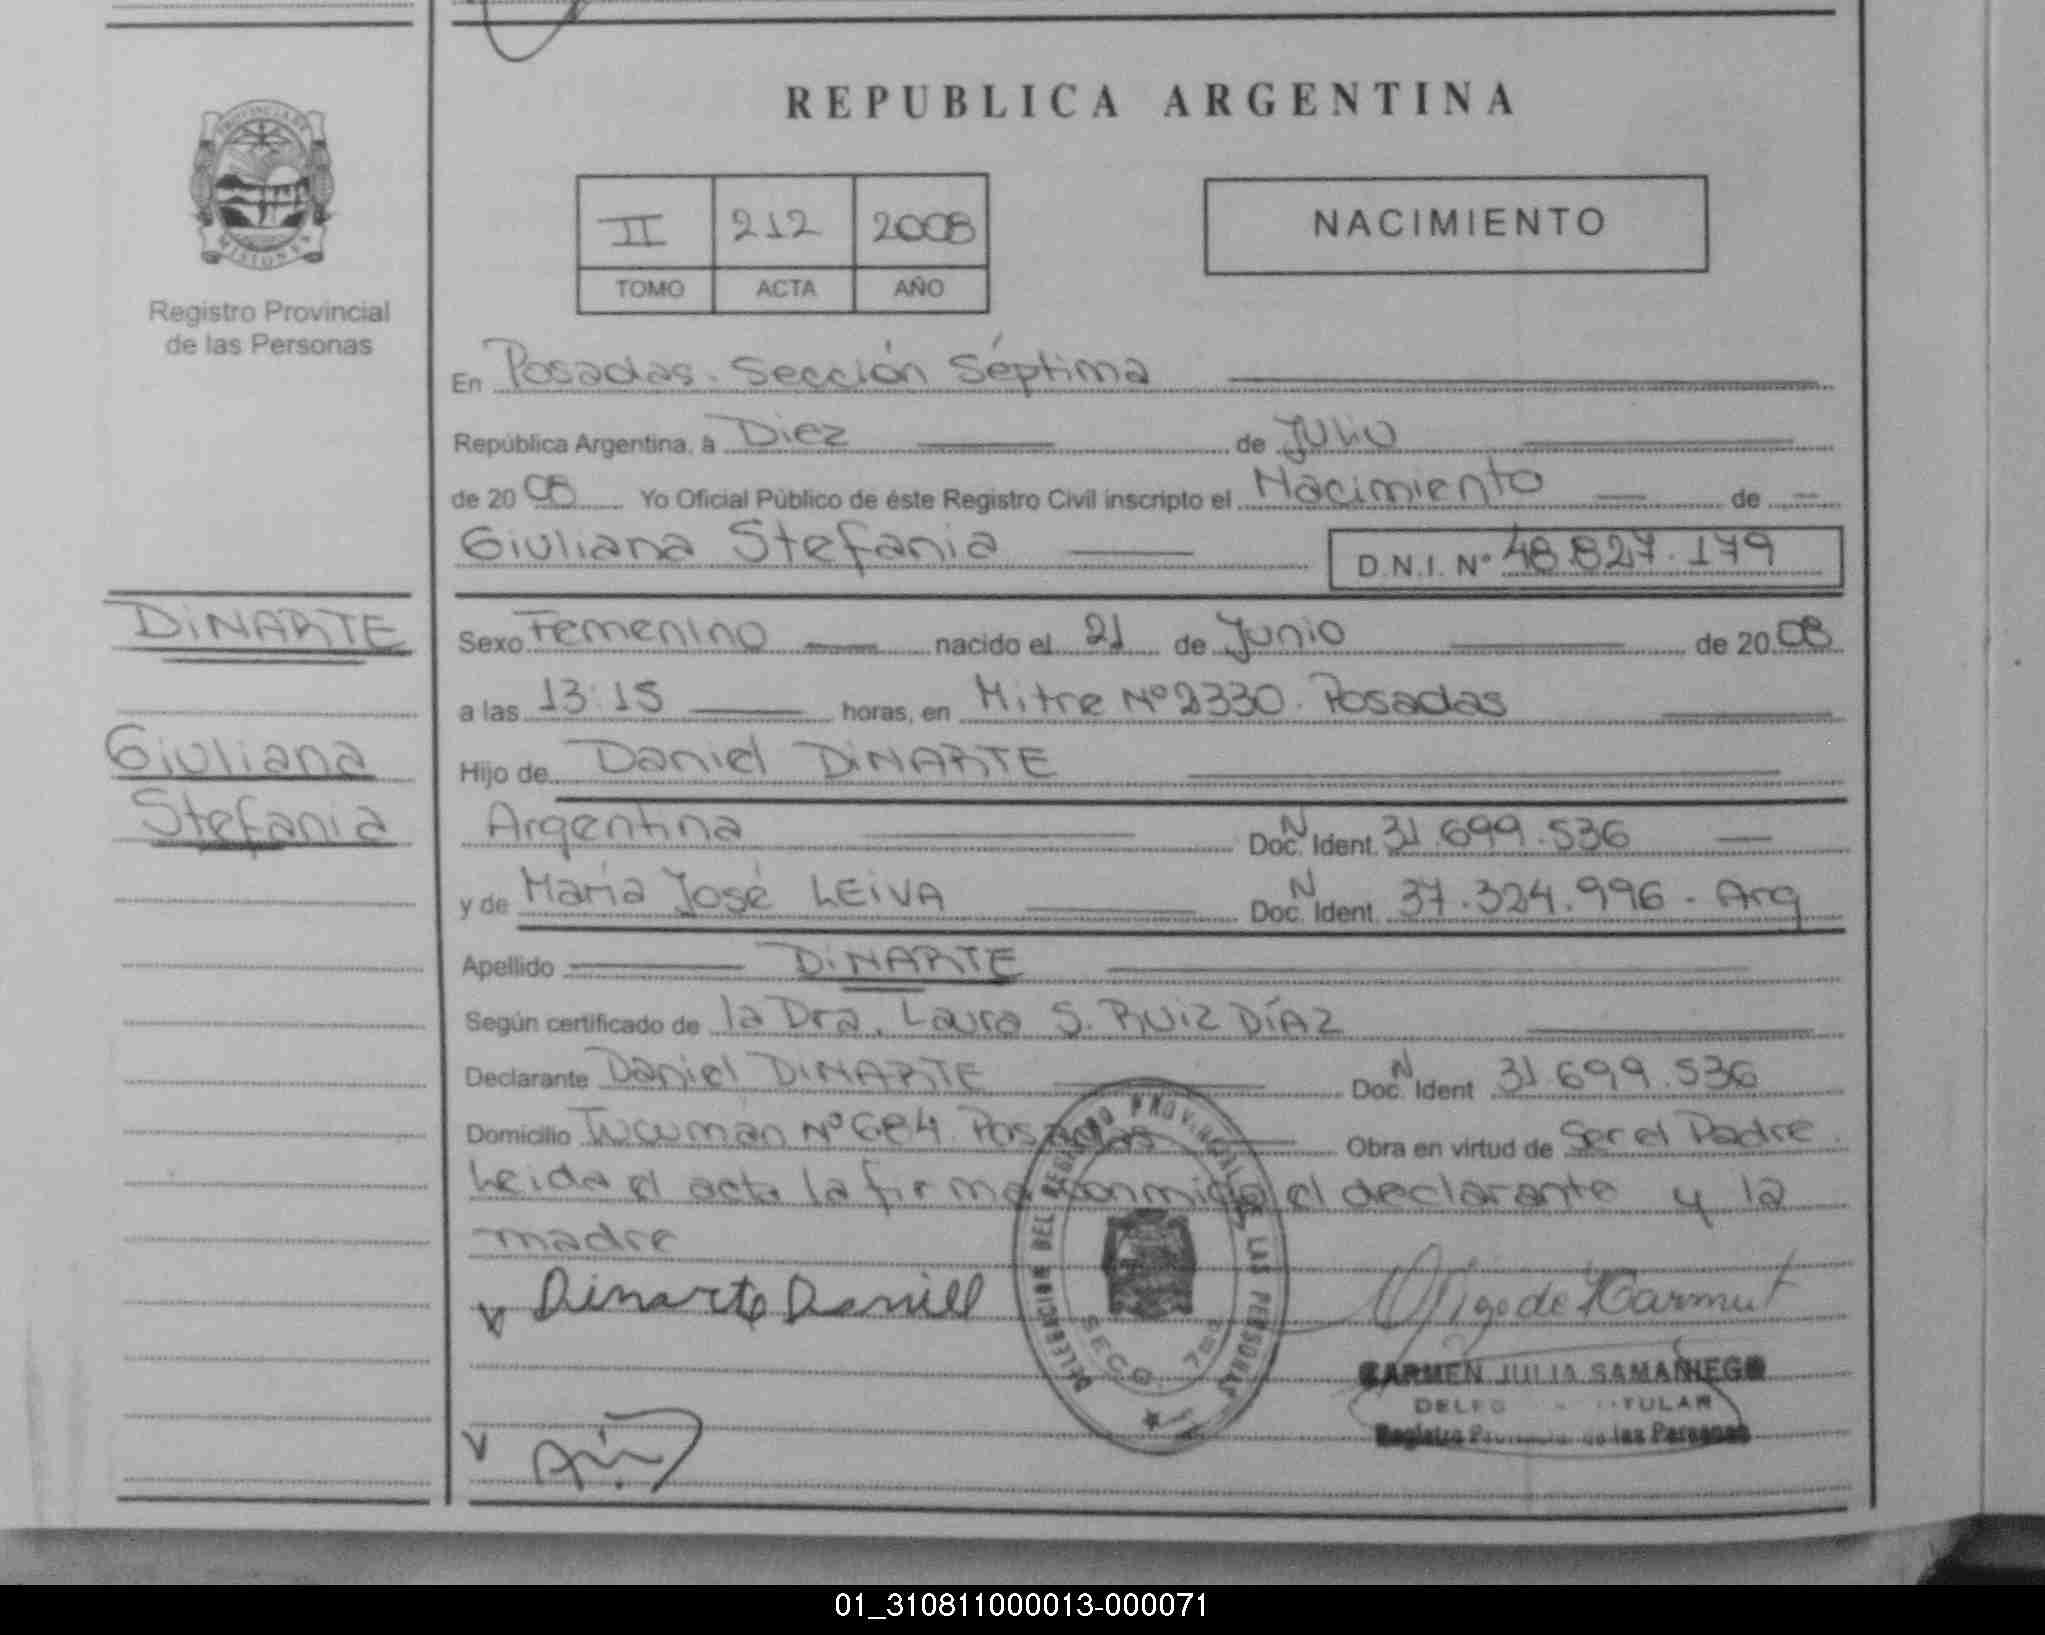 REPUBLICA ARGENTINA
PROVINCIA DE
MISIONES
Registro Provincial
de las Personas
II 212 2008
TOMO ACTA AÑO
NACIMIENTO
En Posadas. Sección Séptima
República Argentina, à Diez de Julio
de 20 08 Yo Oficial Público de éste Registro Civil inscripto el Nacimiento de
Giuliana Stefania D.N.I. Nº 48.827.179
DiNARTE
Giuliana
Stefania
Sexo Femenino nacido el 21 de Junio de 20 08
a las 13:15 horas, en Mitre Nº 2330. Posadas
Hijo de Daniel DiNARTE
Argentina Doc. N Ident. 31.699.536
y de María José LEiVA Doc. N Ident. 37.324.996 - Arg
Apellido DiNARTE
Según certificado de la Dra. Laura S. RUiZ DÍAZ
Declarante Daniel DiNARTE Doc. N Ident 31.699.536
Domicilio Tucumán Nº 684 Posadas Obra en virtud de Ser el Padre.
Leida el acta la firma conmigo el declarante y la
madre
Dinarte Daniel
DELEGACION DEL REGISTRO PROVINCIAL DE LAS PERSONAS
SECC. 7ma
CARMEN JULIA SAMANIEGO
TULAR
Registro de las Personas
01_310811000013-000071